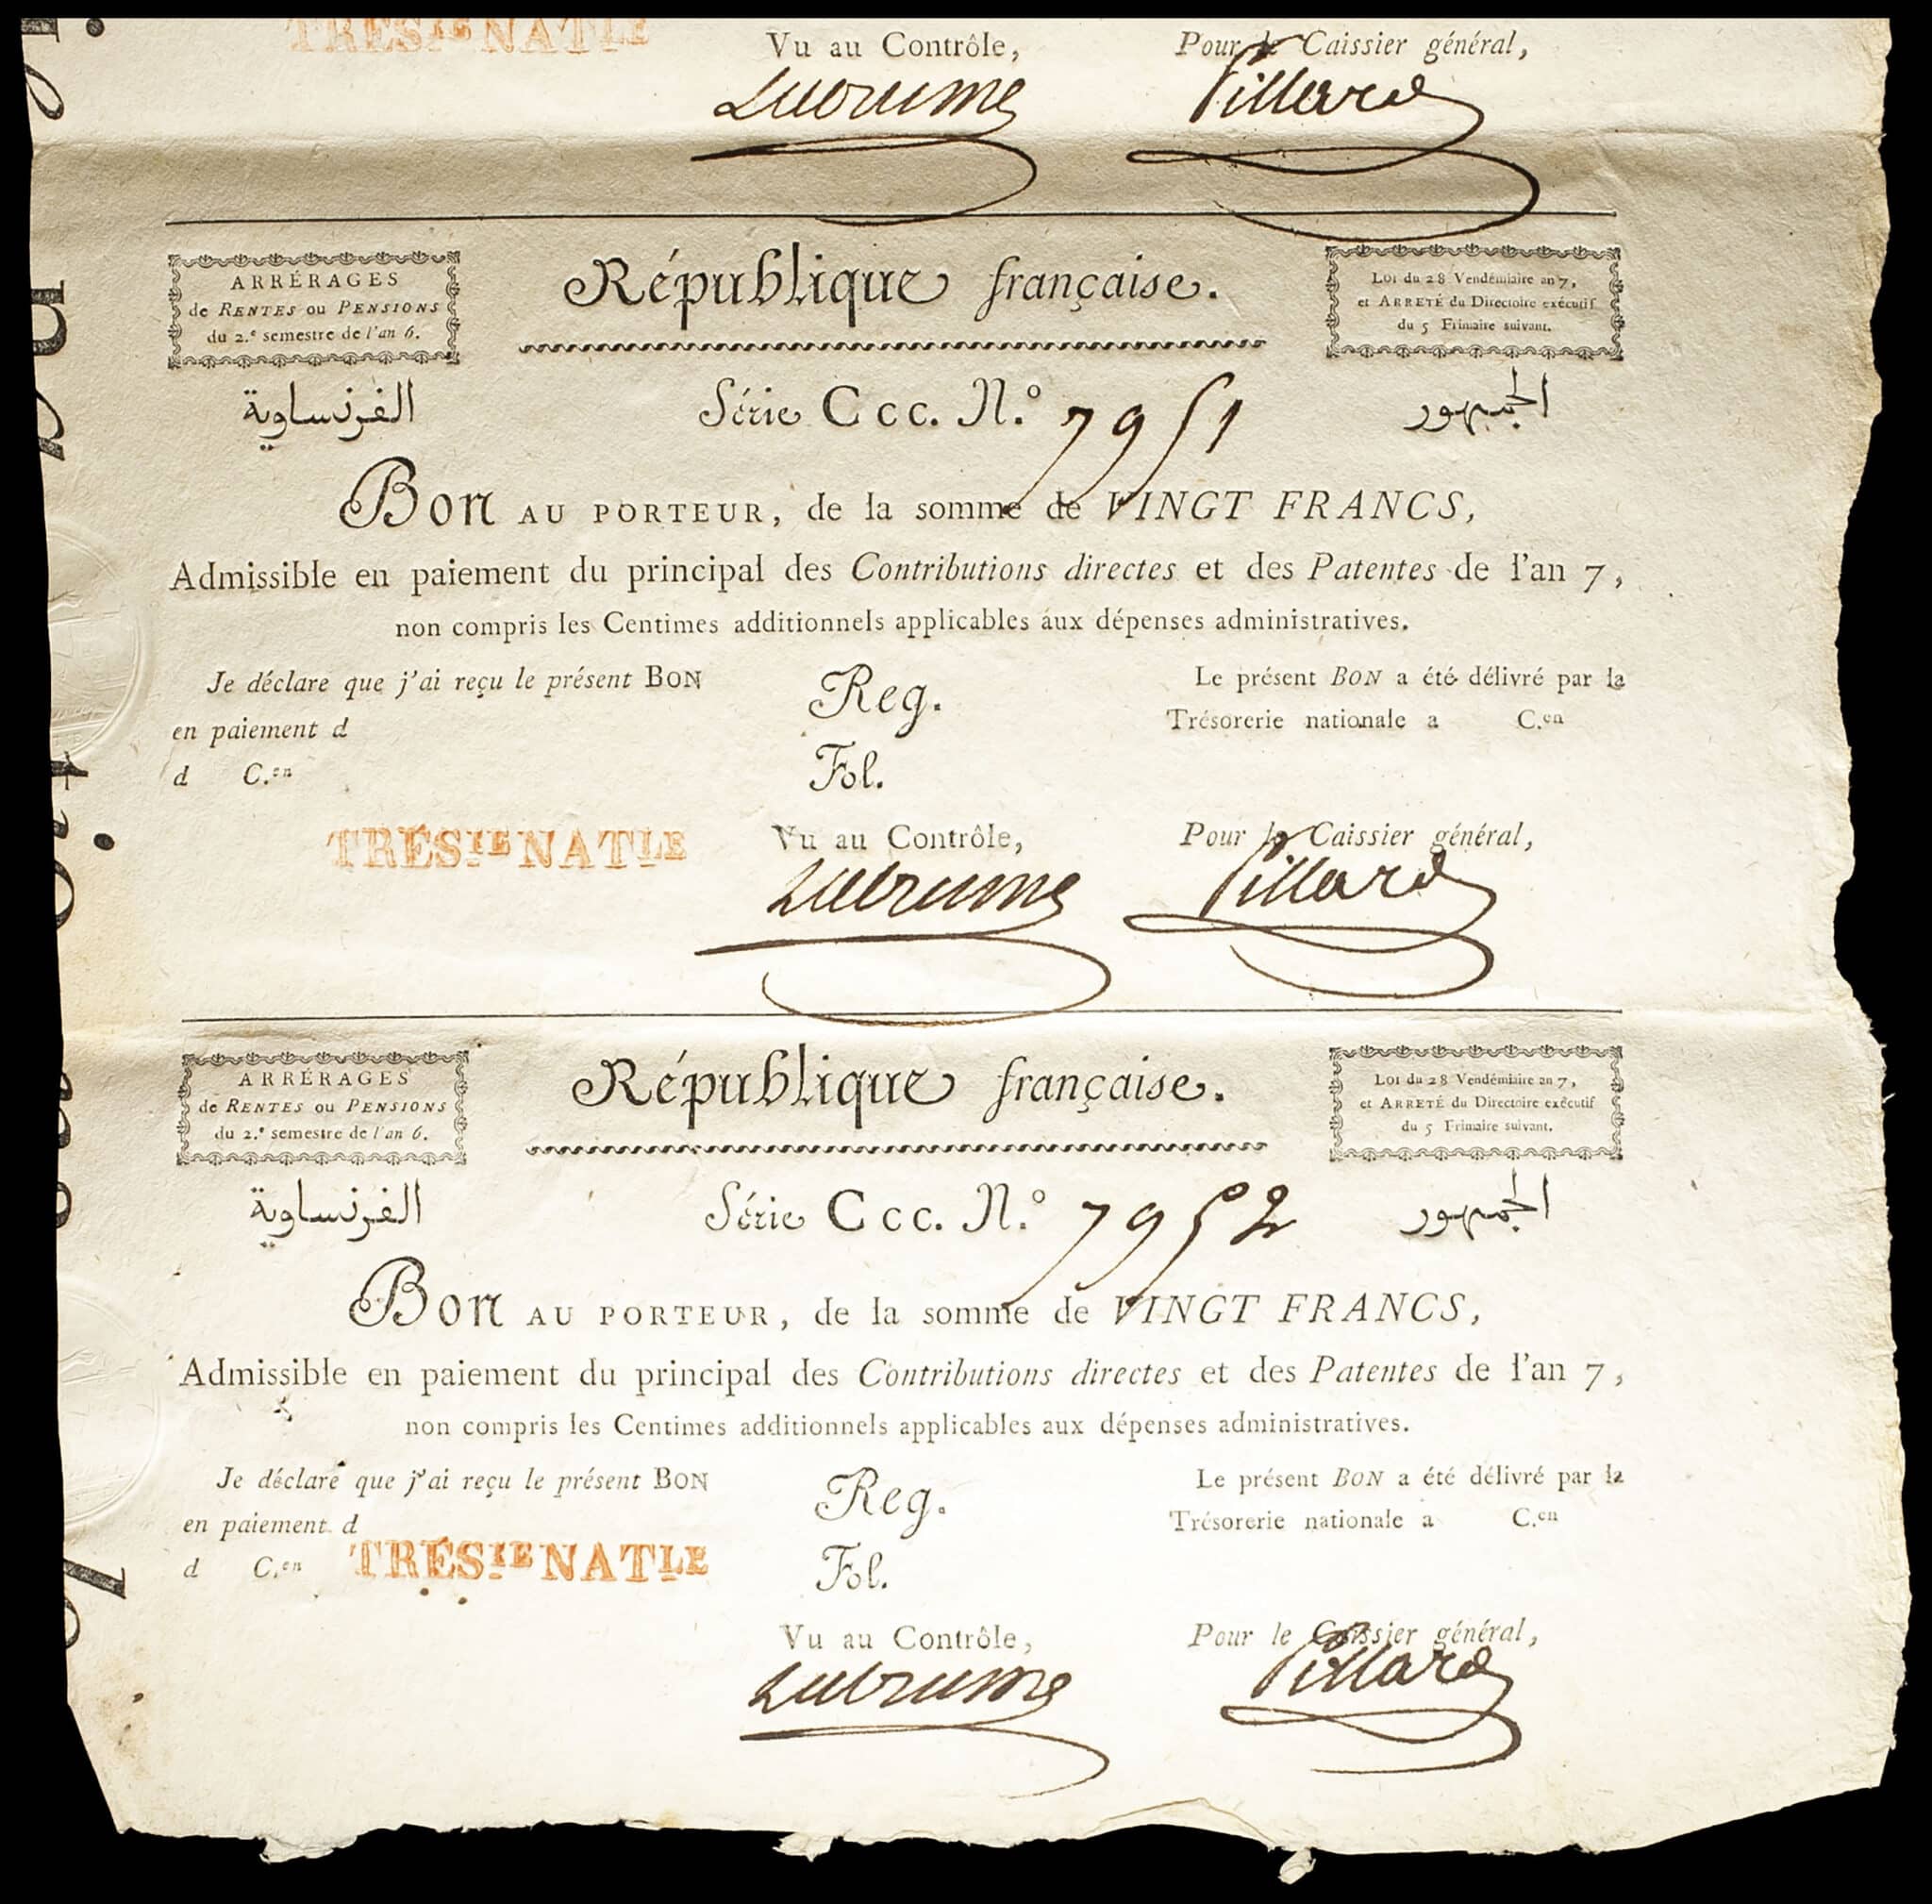 TRÉSIE NATLE
Vu au Contrôle,
Pour le Caissier général,
Pillard
ARRÉRAGES
de RENTES ou PENSIONS
du 2.e semestre de l'an 6.
République française.
Loi du 28 Vendémiaire an 7,
et ARRETÉ du Directoire exécutif
du 5 Frimaire suivant.
الفرنساوية
Série Ccc. N.o 7951
الجمهور
Bon AU PORTEUR, de la somme de VINGT FRANCS,
Admissible en paiement du principal des Contributions directes et des Patentes de l'an 7,
non compris les Centimes additionnels applicables aux dépenses administratives.
Je déclare que j'ai reçu le présent BON
en paiement d
d C.en
Reg.
Fol.
Le présent BON a été délivré par la
Trésorerie nationale a C.en
TRÉSIE NATLE
Vu au Contrôle,
Pour le Caissier général,
Pillard
ARRÉRAGES
de RENTES ou PENSIONS
du 2.e semestre de l'an 6.
République française.
Loi du 28 Vendémiaire an 7,
et ARRETÉ du Directoire exécutif
du 5 Frimaire suivant.
الفرنساوية
Série Ccc. N.o 7952
الجمهور
Bon AU PORTEUR, de la somme de VINGT FRANCS,
Admissible en paiement du principal des Contributions directes et des Patentes de l'an 7,
non compris les Centimes additionnels applicables aux dépenses administratives.
Je déclare que j'ai reçu le présent BON
en paiement d
d C.en
TRÉSIE NATLE
Reg.
Fol.
Le présent BON a été délivré par la
Trésorerie nationale a C.en
Vu au Contrôle,
Pour le Caissier général,
Pillard